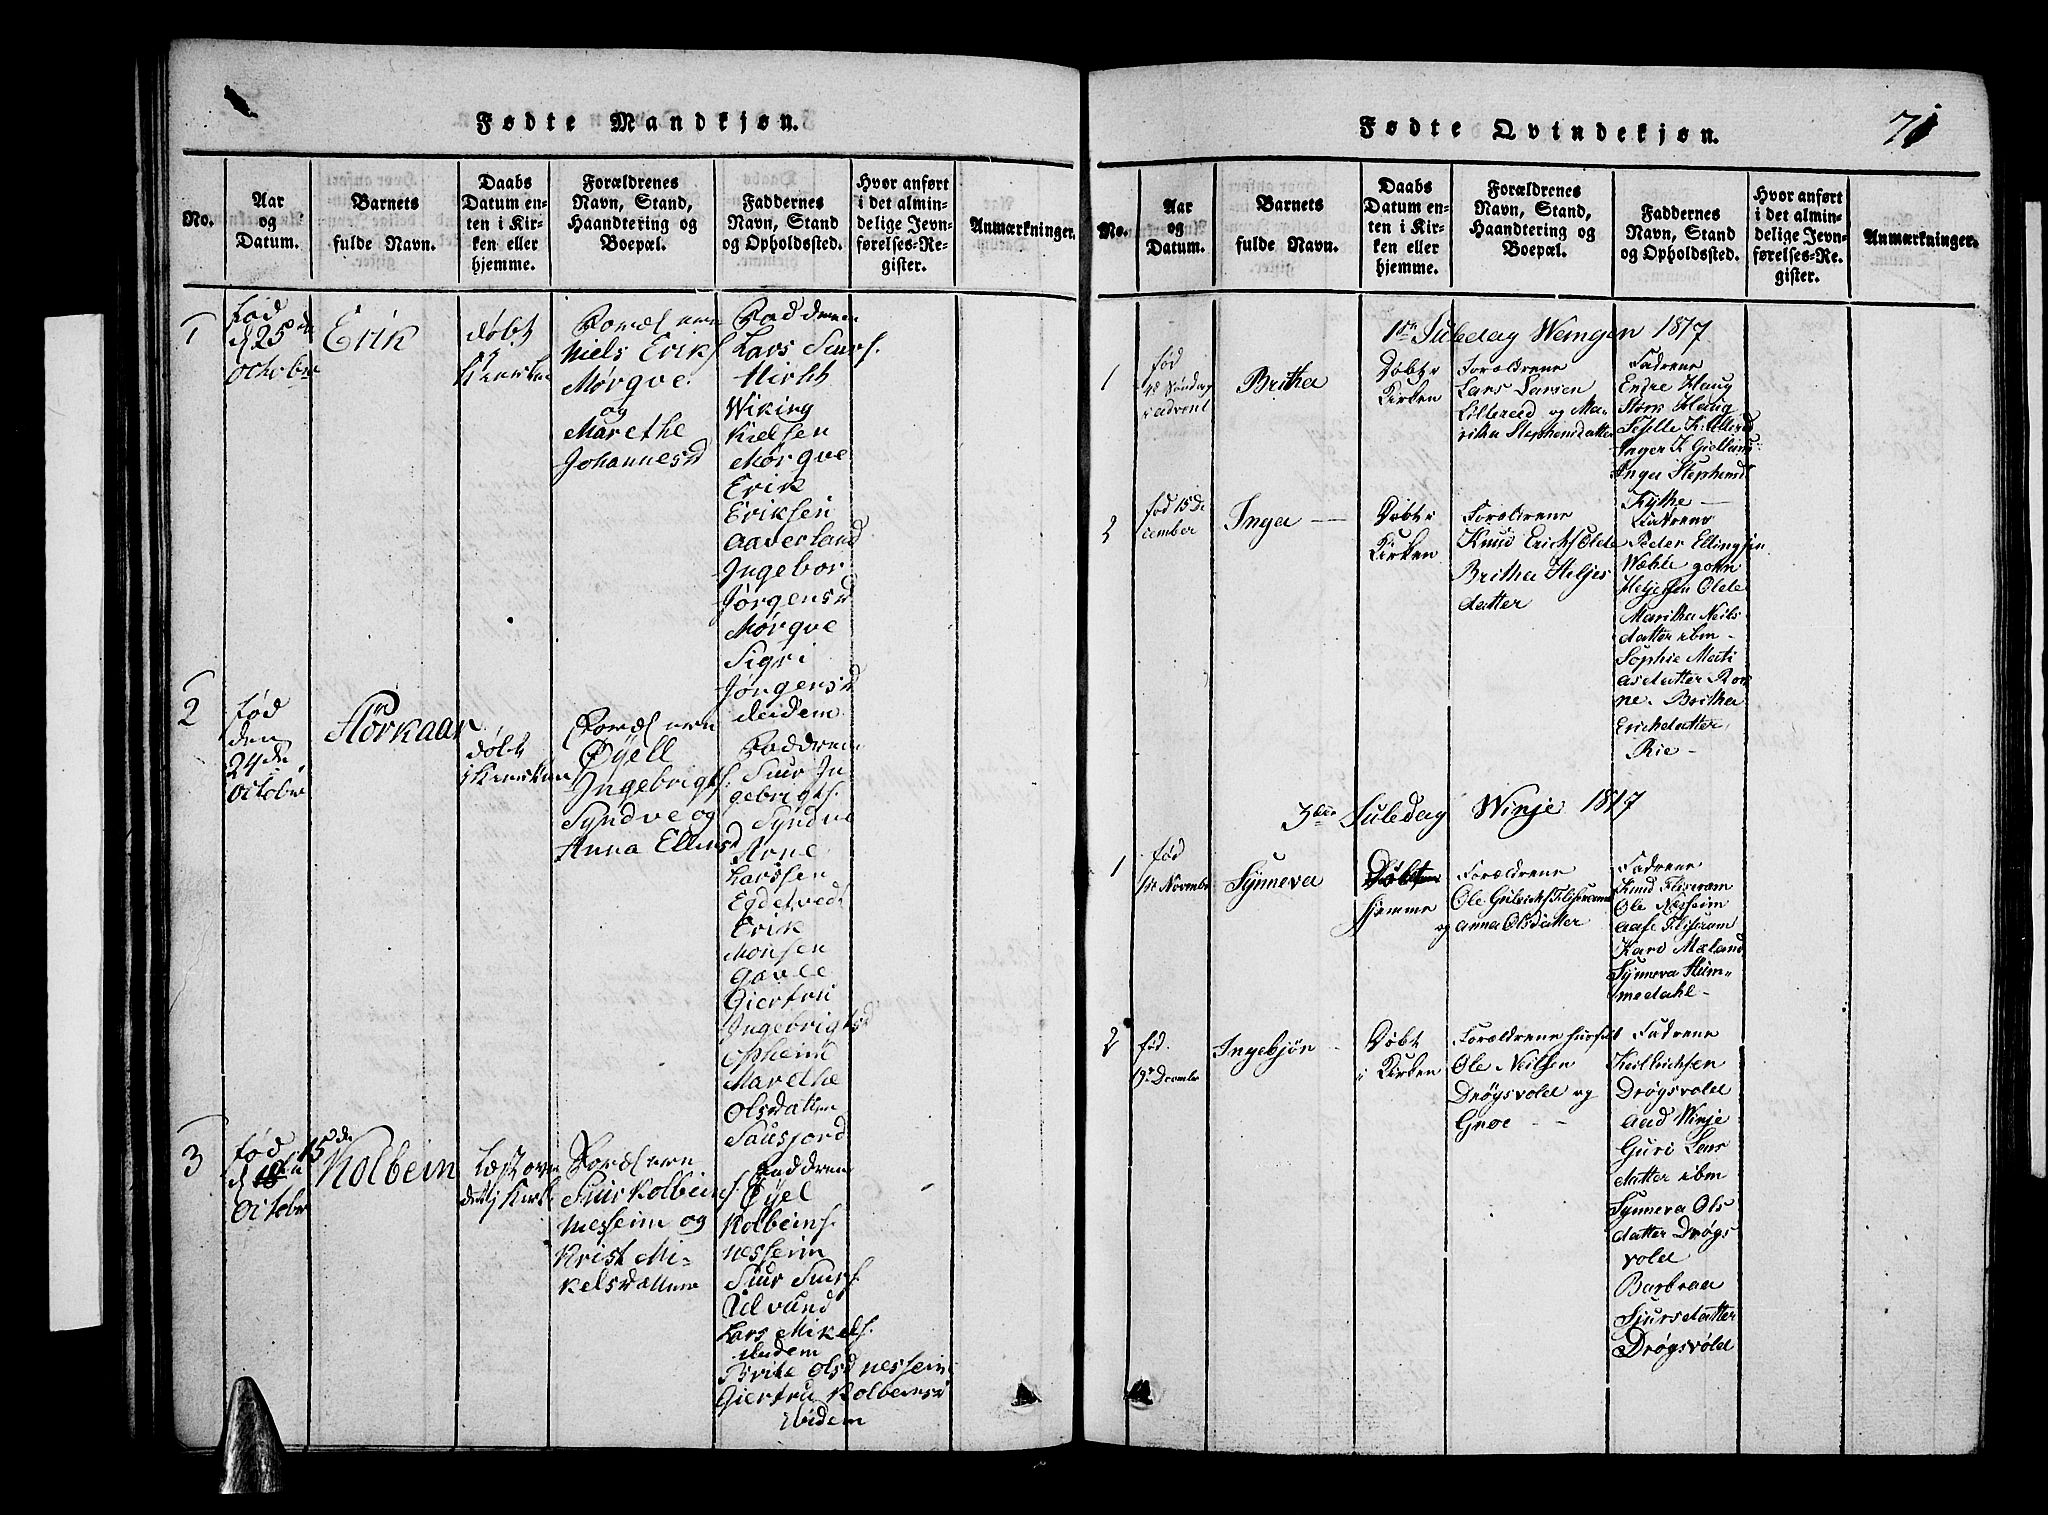 Fødte Mandkjøn.
No.
Aar
og
Datum.
Barnets
fulde Navn.
Daabs
Datum en-
ten i Kir-
ken eller
hjemme.
Forældrenes
Navn, Stand,
Haandtering og
Boepæl.
Faddernes
Navn, Stand
og Opholdssted.
Hvor anført
i det almin-
delige Jevn-
førelses-Re-
gister.
Anmærkninger.
1
fød
d 25de
October
Erik
døbt
Niels Eriks.
Mørqve
og
Marethe
Johannesd
Faddrene
Lars Siurs.
Wiking
Kielsen
Mørqve
Erik
Eriksen
Aaverland
Ingebor
Jørgensd
Mørqve
Sigri
Jørgensd
2
fød
den
24de
October
Størkaar
døbt
Øyell
Ingebrigts.
Syndve og
Anna Ellensd
Faddrene
Siur In
gebrigts.
Syndve
Arne
Larssen
Egdetvedt
Erik
Monsen
Giertru
Ingebrigtsd
Opheim
Marethe
Olsdatter
Saüsjord
3
fød 15de
d
October
Kolbein
Siur Kolbeins.
Nesheim og
Krist Mi-
kelsdatter
Faddrene
Øyel
Kolbeins.
Nesseim
Siur Siurs.
Lars Mikels.
Brite Olsd Nesseim
Giertru Kolbeinsd
ibidem
Fødte Qvindekjøn.
71
No.
Aar
og
Datum.
Barnets
fulde Navn.
Daabs
Datum en-
ten i Kir-
ken eller
hjemme.
Forældrenes
Navn, Stand,
Haandtering og
Boepæl.
Faddernes
Navn, Stand
og Opholdssted.
Hvor anført
i det almin-
delige Jevn-
førelses-Re-
gister.
Anmærkninger.
1te Juledag Wangen 1817
1
fød
4de Søndag
i advent
Britha
Døbt i
Kirken
Forældrene
Lars Larsen
Lillereid og Ma-
ritha Stephensdatter
Fadrene
Endre Haug
Størk Haug
Inger Stephensd
2
fød 15 De
cember
Inga
Døbt i
Kirken
Forældrene
Knud Erichs Olde
Britha Heljes
datter
Fadrene
Peder Ellingsen
Heljesen Olde
Maritha Neils
datter ibm
Sophie Mati
asdatter Ron
ne. Britha
Erichdatter
Rie
3die Juledag Winje 1817
1
fød
1te Novembr
Synneva
Døbt
hjemme
Forældrene
anna Olsdatter
og
Fadrene
Knud Fliseram
Ole Næsheim
Aase Fliseram
Kari Mæland
Synneva Hüm-
medahl
2
fød.
19de Decembr
Ingebjør
Døbt
i Kirken
Forældrene husfol
Ole Neilsen
Drøgsvold og
Groe
Fadrene
Drøgsvold
Aad Winje
Guri Lars
datter ibm
Synneva Ols
datter Drøgs
vold
Barbraa
Sjursdatter
Drøgsvold